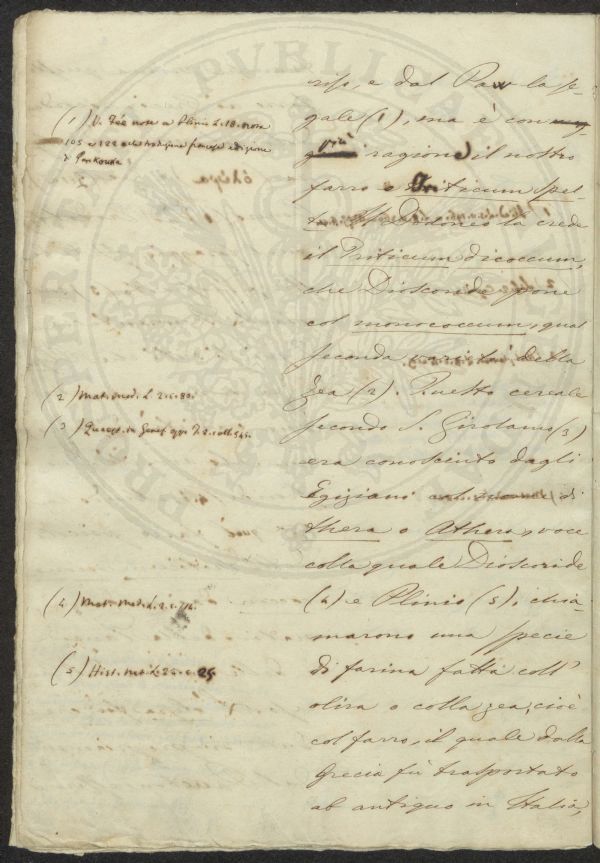 riso, e dal Paw la se-
gale (1), ma è con
più ragione il nostro
farro e Triticum spel-
ta. Il Dodoneo la crede
il Triticum dicoccum,
che Dioscoride pone
col monococcum, qual
seconda varietà della
Zea (2). Questo cereale
secondo S. Girolamo (3)
era conosciuto dagli
Egiziani col nome di
thera o Athera, voce
colla quale Dioscoride
(4) e Plinio (5), chia-
marono una specie
di farina fatta coll'
olira o colla zea, cioè
col farro, il quale dalla
Grecia fù trasportato
ab antiquo in Italia,
(1) V. Fée note a Plinio L. 18. nota
105 e 122 edizione
di Pankouke
(2) Mat. med. L. 2. c. 80.
(3) Quaest. in Genes.
(4) Mat. Med. L. 2. c. 114.
(5) Hist. nat. L. 22. c. 25.
PVBLICAE